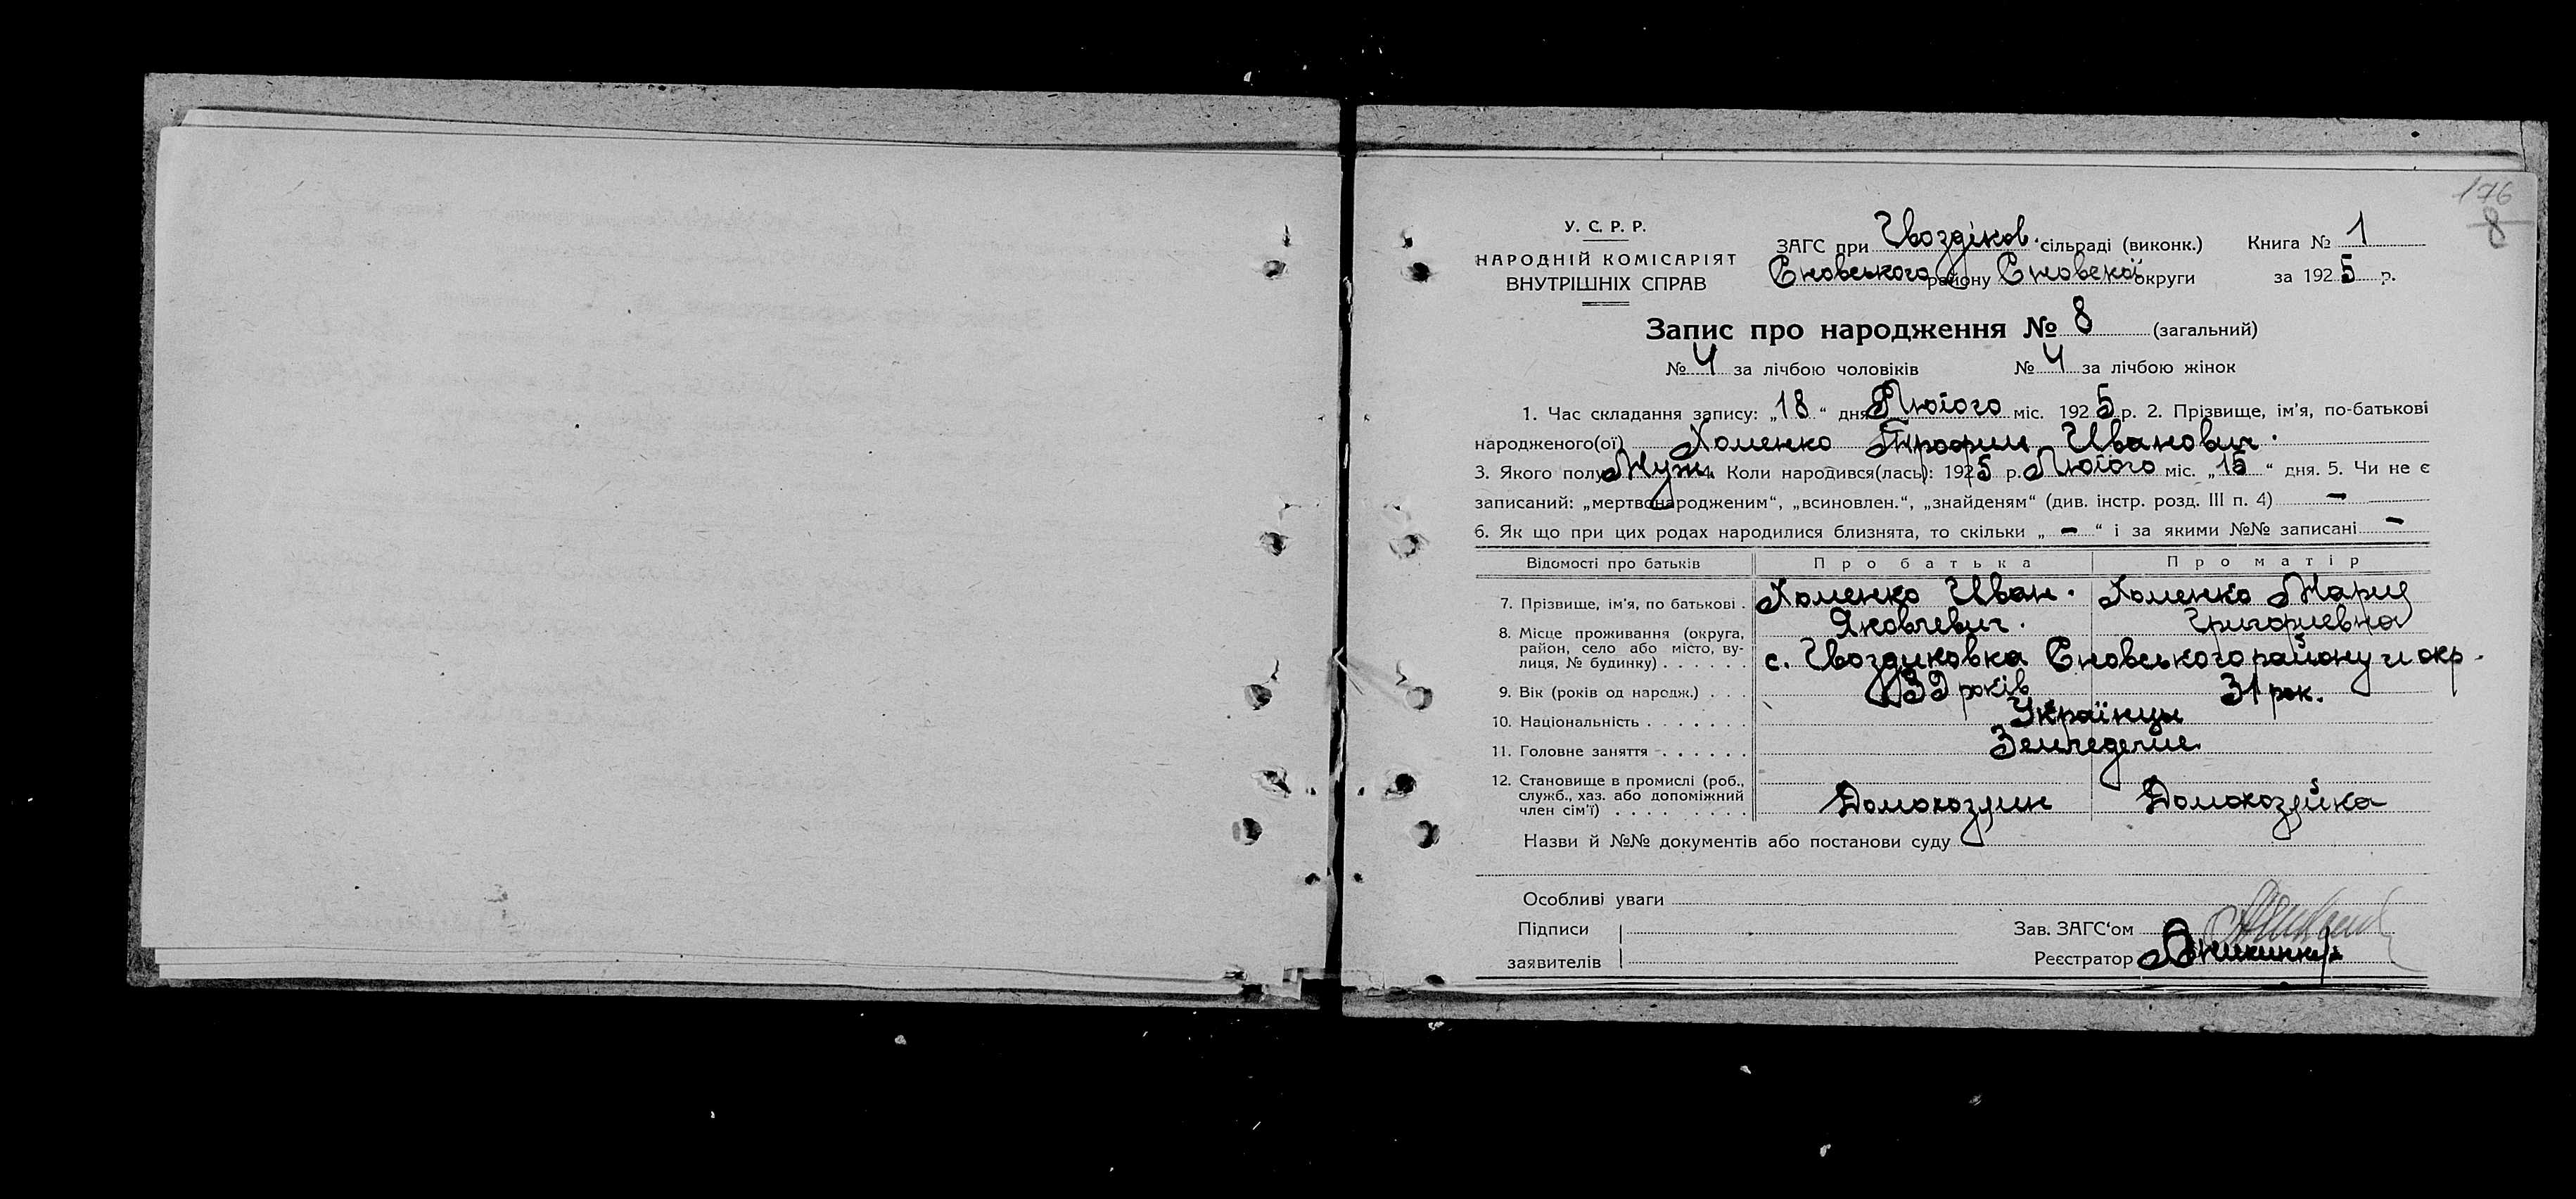 176
8
У. С. Р. Р.
НАРОДНІЙ КОМІСАРІЯТ
ВНУТРІШНІХ СПРАВ
ЗАГС при Гвоздіков. сільраді (виконк.)
Сновського району Сновской округи
Книга № 1
за 1925 р.
Запис про народження № 8 (загальний)
№ 4 за лічбою чоловіків № 4 за лічбою жінок
1. Час складання запису: „18“ дня Лютого міс. 1925 р. 2. Прізвище, ім'я, по-батькові
народженого(ої) Хоменко Трофим Иванович.
3. Якого полу Муж. 4. Коли народився(лась): 1925 р. Лютого міс. „15“ дня. 5. Чи не є
записаний: „мертвонародженим“, „всиновлен.“, „знайденям“ (див. інстр. розд. III п. 4) –
6. Як що при цих родах народилися близнята, то скільки „ – “ і за якими №№ записані –
Відомості про батьків Про батька Про матір
7. Прізвище, ім'я, по батькові . Хоменко Иван. Хоменко Мария
Яковлевич. Григориевна
8. Місце проживання (округа,
район, село або місто, ву-
лиця, № будинку) . . . . . . с. Гвоздиковка Сновського району и окр.
9. Вік (років од народж.) . . . 39 років 31 рок.
10. Національність . . . . . . . Українцы
11. Головне заняття . . . . . . Земледелие
12. Становище в промислі (роб.,
служб., хаз. або допоміжний
член сім'ї) . . . . . . . . . Домохозяин Домохозяйка
Назви й №№ документів або постанови суду
Особливі уваги
Підписи
заявителів
Зав. ЗАГС‘ом
Реєстратор